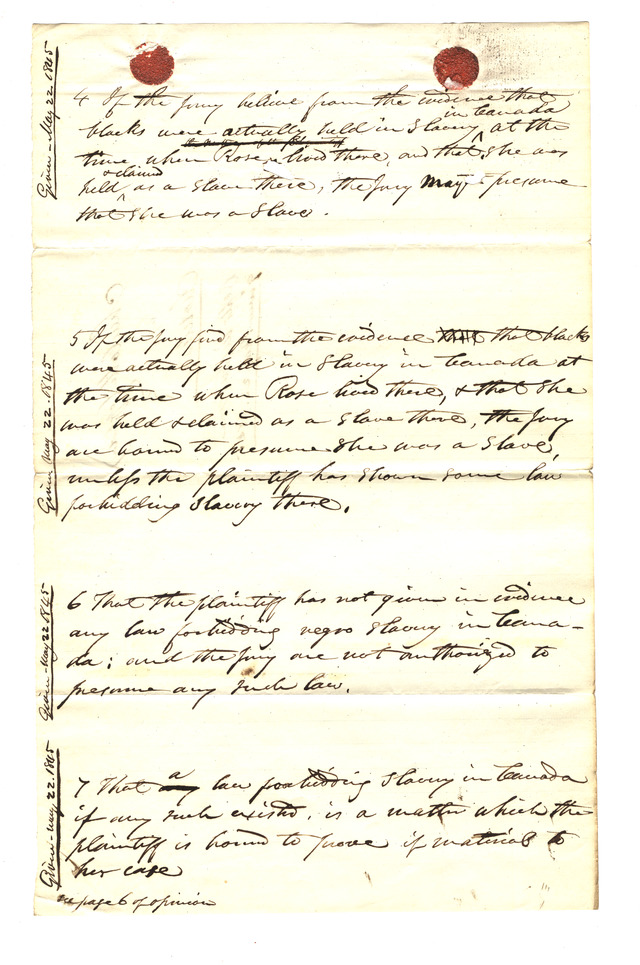 Given - May 22. 1845
4 If the jury believe from the evidence that
in Canada
blacks were actually held in Slavery at the
time when Rose lived there, and that she was
& claimed
held as a Slave there, the jury may presume
that she was a Slave.
Given May 22. 1845
5 If the jury find from the evidence that blacks
were actually held in Slavery in Canada at
the time when Rose lived there, & that She
was held & claimed as a Slave there, the jury
are bound to presume She was a Slave,
unless the plaintiff has shown some law
forbidding Slavery there.
Given - May 22 1845
6 That the plaintiff has not given in evidence
any law forbidding negro Slavery in Cana-
da; and the jury are not authorized to
presume any such law.
Given - May 22. 1845
a
7 That any law forbidding Slavery in Canada
if any such existed, is a matter which the
plaintiff is bound to prove if material to
her case
see page 6 of opinion